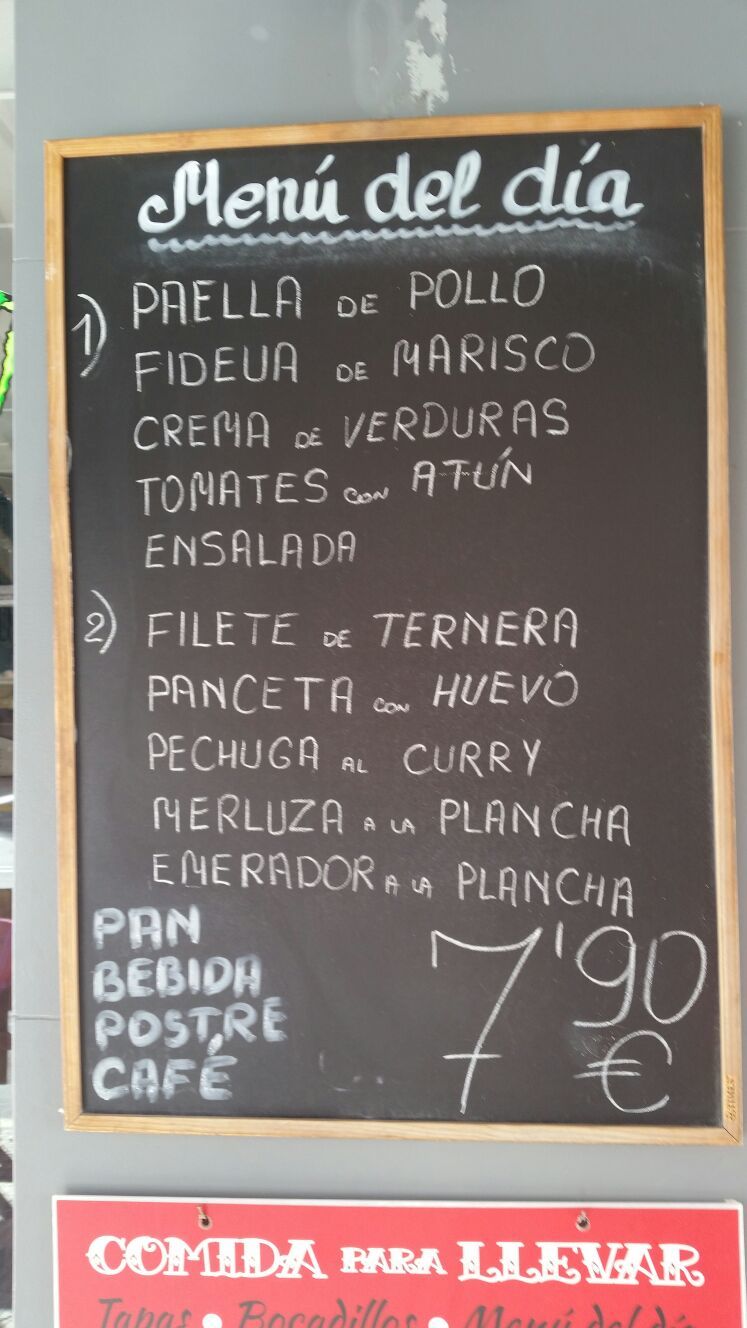 Menú del día
1) PAELLA DE POLLO
FIDEUA DE MARISCO
CREMA DE VERDURAS
TOMATES CON ATÚN
ENSALADA
2) FILETE DE TERNERA
PANCETA CON HUEVO
PECHUGA AL CURRY
MERLUZA A LA PLANCHA
EMERADOR A LA PLANCHA
PAN
BEBIDA
POSTRE
CAFÉ
7'90
€
COMIDA PARA LLEVAR
Tapas • Bocadillos • Menú del día